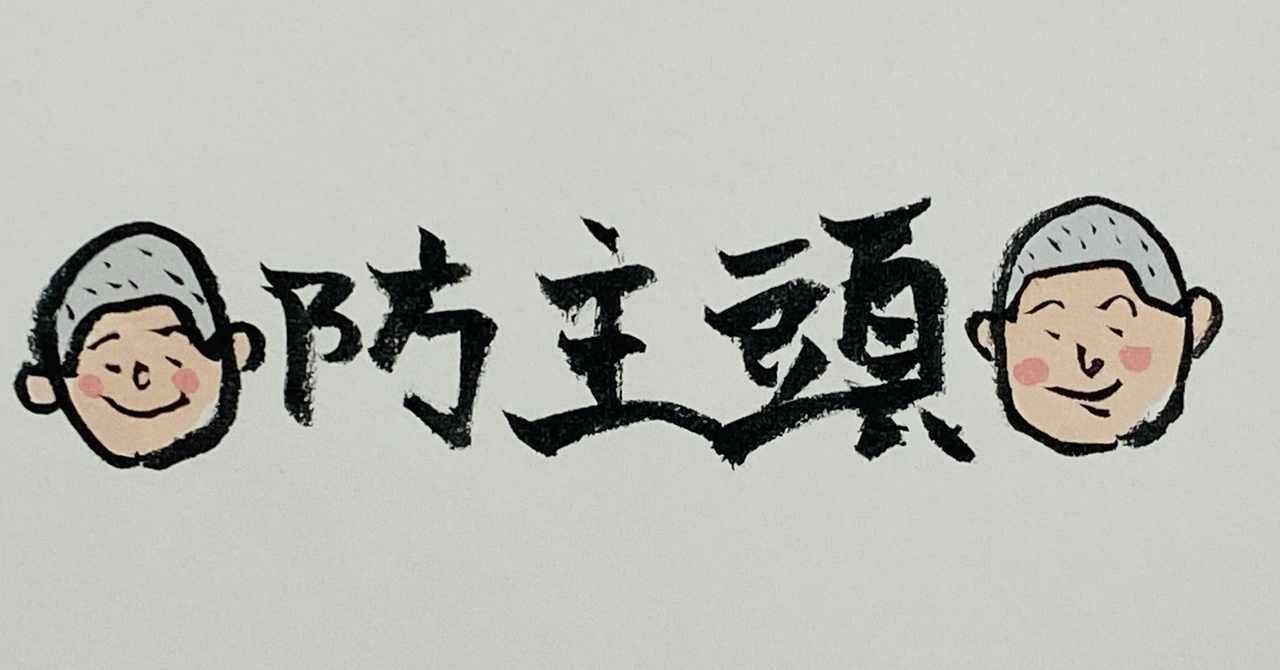 防主頭